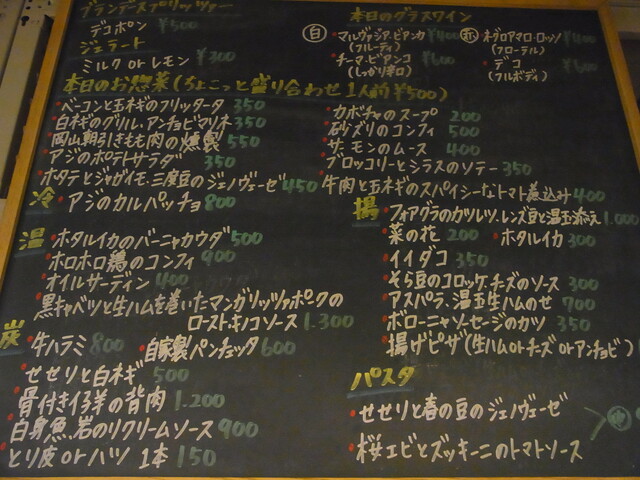 ブランデースプリッツァー
デコポン ¥500
ジェラート
ミルク or レモン ¥300
本日のグラスワイン
白
・マルヴァジア・ビアンカ ¥400
(フルーティ)
・チーマ・ビアンコ ¥600
(しっかり辛口)
赤
・ネグロアマロ・ロッソ ¥400
(フローテル)
・デコ ¥600
(フルボディ)
本日のお惣菜(ちょこっと盛り合わせ1人前¥500)
・ベーコンと玉ネギのフリッタータ 350
・白ネギのグリル・アンチョビマリネ 350
・岡山朝引きもも肉の燻製 550
・アジのポテトサラダ 350
・ホタテとジャガイモ・三度豆のジェノヴェーゼ 450
・カボチャのスープ 200
・砂ズリのコンフィ 500
・サーモンのムース 400
・ブロッコリーとシラスのソテー 350
・牛肉と玉ネギのスパイシーなトマト煮込み 400
冷
・アジのカルパッチョ 800
温
・ホタルイカのバーニャカウダ 500
・ホロホロ鶏のコンフィ 900
・オイルサーディン 400
・黒キャベツと生ハムを巻いたマンガリッツァポークの
ロースト・キノコソース 1.300
炭
・牛ハラミ 800 ・自家製パンチェッタ 600
・せせりと白ネギ 500
・骨付き仔羊の背肉 1.200
・白身魚、岩のりクリームソース 900
・とり皮 or ハツ 1本 150
揚
・フォアグラのカツレツ、レンズ豆と温玉添え 1.000
・菜の花 200 ・ホタルイカ 300
・イイダコ 350
・そら豆のコロッケ、チーズのソース 300
・アスパラ、温玉生ハムのせ 700
・ボローニャソーセージのカツ 350
・揚げピザ(生ハム or チーズ or アンチョビ)
パスタ
・せせりと春の豆のジェノヴェーゼ
・桜エビとズッキーニのトマトソース